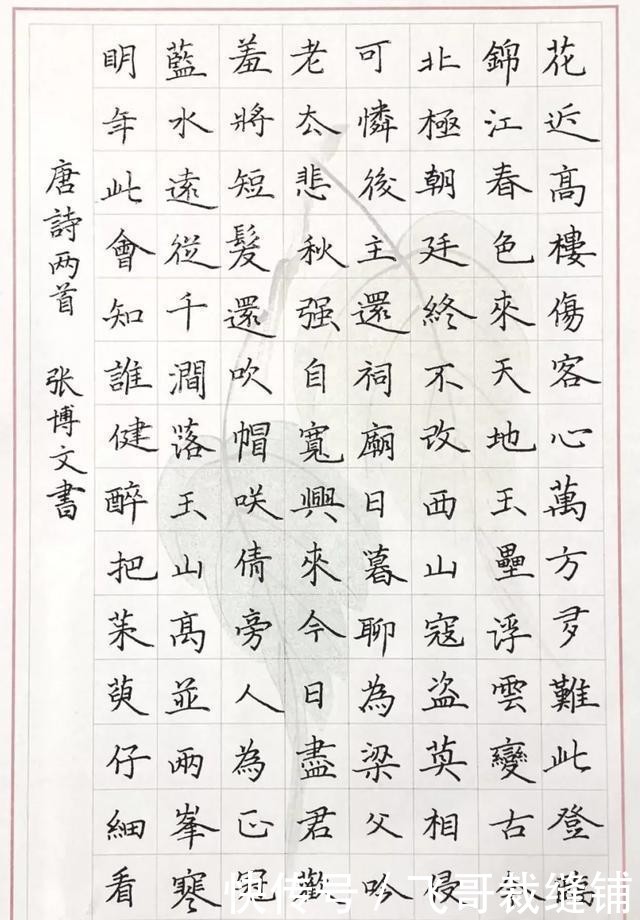 花近高樓傷客心萬方多難此登臨
錦江春色來天地玉壘浮雲變古今
北極朝廷終不改西山寇盗莫相侵
可憐後主還祠廟日暮聊為梁父吟
老去悲秋强自寬興來今日盡君歡
羞將短髮還吹帽咲倩旁人為正冠
藍水遠從千澗落玉山高並两峯寒
明年此會知誰健醉把茱萸仔細看
唐詩两首 张博文書
快传号/飞哥裁缝铺